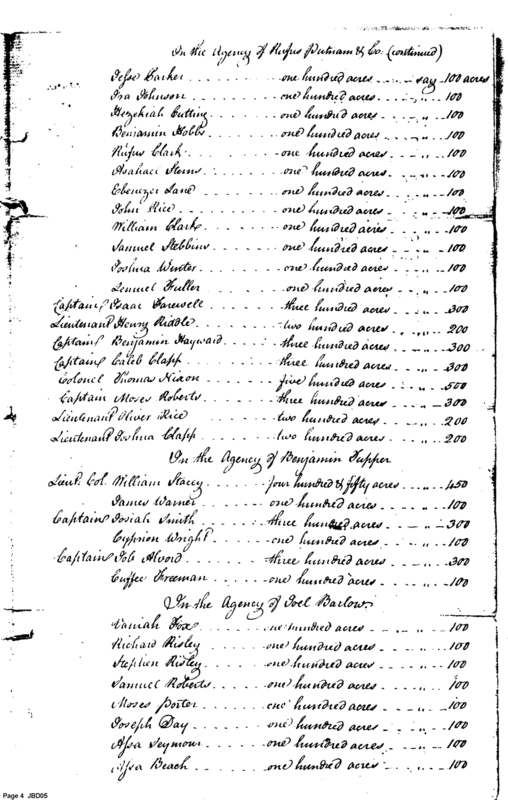 In the Agency of Rufus Putnam & Co. (continued)
Jesse Barker . . . . . . . . one hundred acres . . . . say 100 acres
Ira Johnson . . . . . . . . one hundred acres . . . . „ . . 100
Hezekiah Cutting . . . . . . one hundred acres . . . . „ . . 100
Benjamin Hobbs . . . . . . one hundred acres . . . . „ . . 100
Rufus Clark . . . . . . . . one hundred acres . . . . „ . . 100
Asahael Sterns . . . . . . one hundred acres . . . . „ . . 100
Ebenezer Lane . . . . . . one hundred acres . . . . „ . . 100
John Rice . . . . . . . . one hundred acres . . . . „ . . 100
William Clark . . . . . . one hundred acres . . . . „ . . 100
Samuel Stebbins . . . . . . one hundred acres . . . . „ . . 100
Joshua Winter . . . . . . one hundred acres . . . . „ . . 100
Lemuel Fuller . . . . . . one hundred acres . . . . „ . . 100
Captain Isaac Farewell . . . . . . three hundred acres . . . . „ . . 300
Lieutenant Henry Riddle . . . . . . two hundred acres . . . . „ . . 200
Captain Benjamin Hayward . . . . three hundred acres . . . . „ . . 300
Captain Calib Clapp . . . . . . three hundred acres . . . . „ . . 300
Colonel Thomas Nixon . . . . . . five hundred acres . . . . „ . . 500
Captain Moses Roberts . . . . . . three hundred acres . . . . „ . . 300
Lieutenant Oliver Rice . . . . . . two hundred acres . . . . „ . . 200
Lieutenant Joshua Clapp . . . . . . two hundred acres . . . . „ . . 200
In the Agency of Benjamin Tupper
Lieut. Col. William Stacey . . . . four hundred & fifty acres . . . . „ . . 450
James Warner . . . . . . one hundred acres . . . . „ . . 100
Captain Josiah Smith . . . . . . three hundred acres . . . . „ . . 300
Cyprion Wright . . . . . . one hundred acres . . . . „ . . 100
Captain Job Alvord . . . . . . three hundred acres . . . . „ . . 300
Cuffee Freeman . . . . . . one hundred acres . . . . „ . . 100
In the Agency of Joel Barlow
Vaniah Fox . . . . . . one hundred acres . . . . „ . . 100
Richard Risley . . . . . . one hundred acres . . . . „ . . 100
Stephen Risley . . . . . . one hundred acres . . . . „ . . 100
Samuel Roberts . . . . . . one hundred acres . . . . „ . . 100
Moses Porter . . . . . . one hundred acres . . . . „ . . 100
Joseph Day . . . . . . one hundred acres . . . . „ . . 100
Assa Seymour . . . . . . one hundred acres . . . . „ . . 100
Assa Beach . . . . . . one hundred acres . . . . „ . . 100
Page 4 JBD05